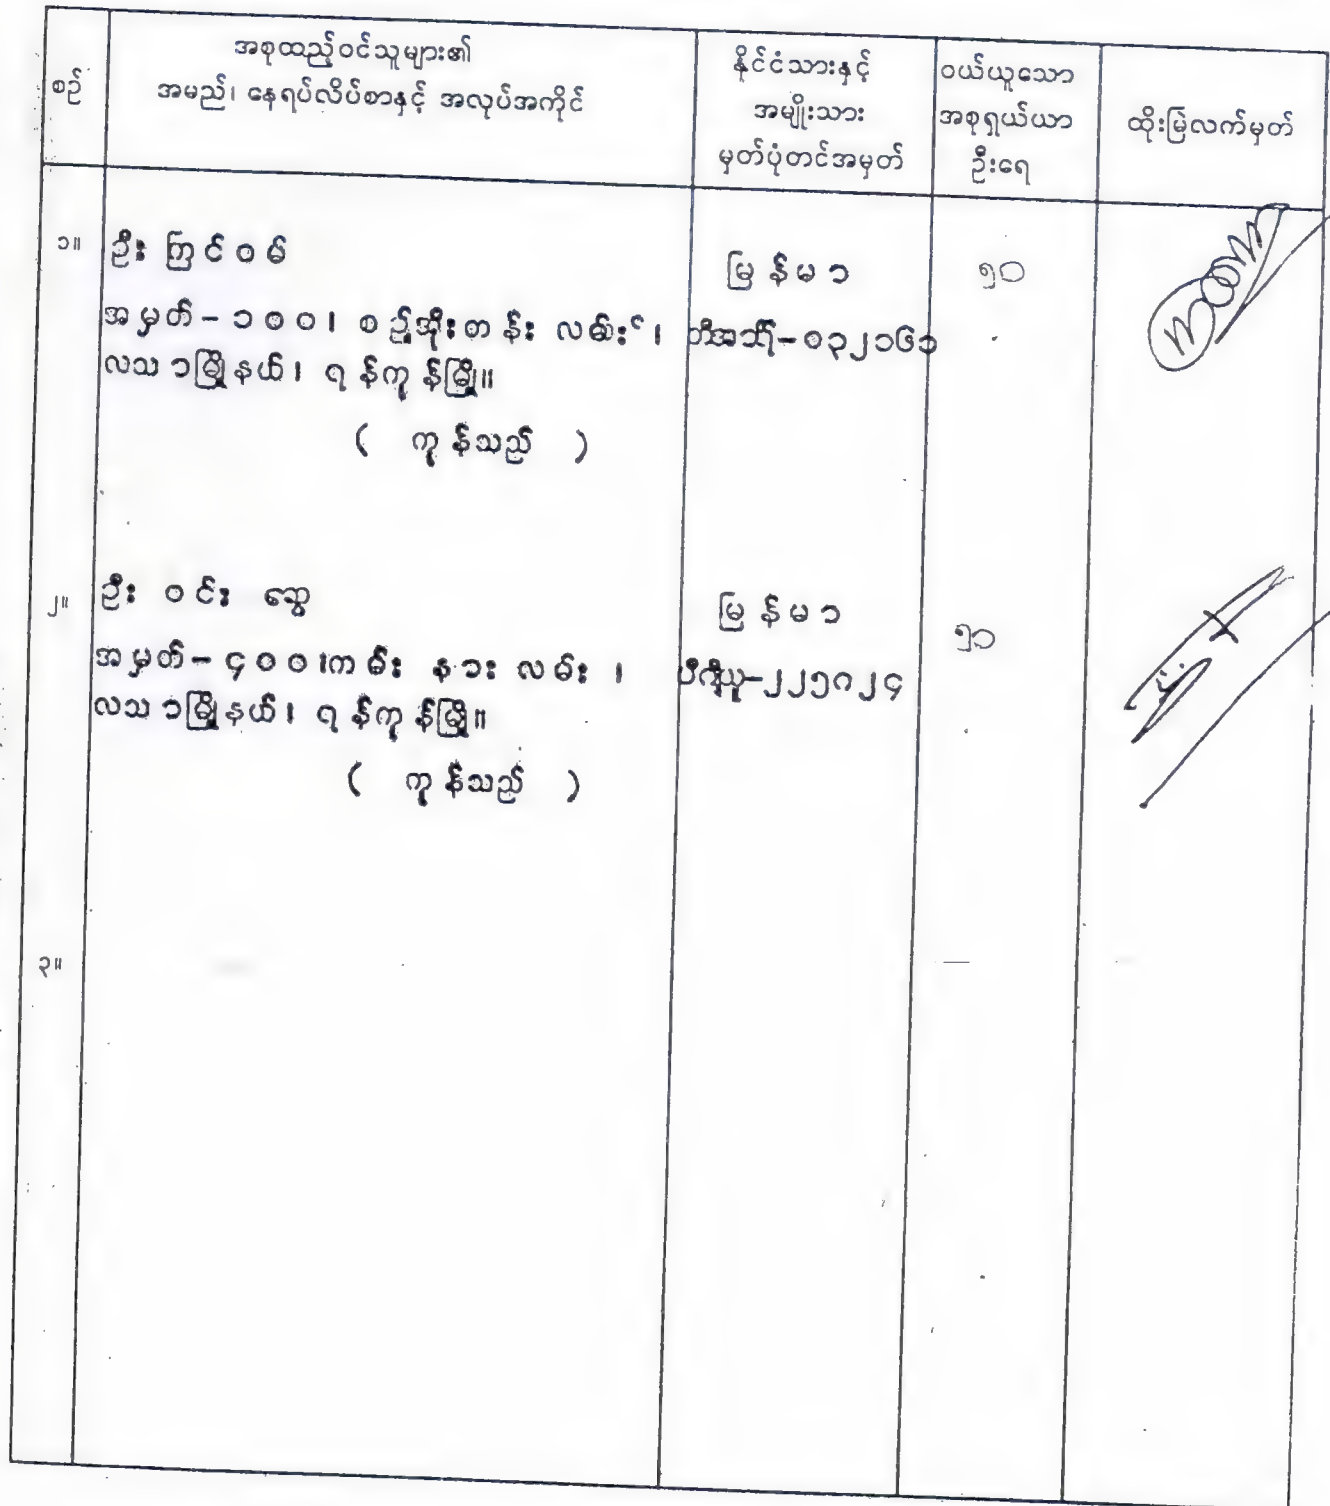 စဉ်
အစုထည့်ဝင်သူများ၏
အမည်၊ နေရပ်လိပ်စာနှင့် အလုပ်အကိုင်
နိုင်ငံသားနှင့်
အမျိုးသား
မှတ်ပုံတင်အမှတ်
ဝယ်ယူသော
အစုရှယ်ယာ
ဦးရေ
ထိုးမြဲလက်မှတ်
၁။
ဦး ကြင်ဝမ်
အမှတ်-၁၀၀၊ စဉ့်အိုးတန်း လမ်း၊
လသာမြို့နယ်၊ ရန်ကုန်မြို့။
( ကုန်သည် )
မြန်မာ
ဘီအာရ်-၀၃၂၁၆၁
၅၀
၂။
ဦး ဝင်း ဆွေ
အမှတ်-၄၀၀၊ကမ်း နား လမ်း ၊
လသာမြို့နယ်၊ ရန်ကုန်မြို့။
( ကုန်သည် )
မြန်မာ
ပီဂျီယူ-၂၂၅၈၂၄
၃။